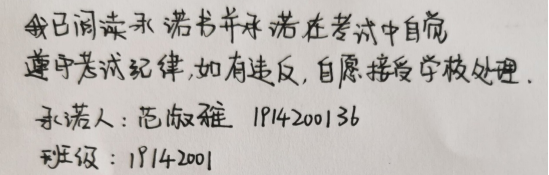 我已阅读承诺书并承诺在考试中自觉
遵守考试纪律,如有违反,自愿接受学校处理.
承诺人:范淑雅 1914200136
班级:19142001